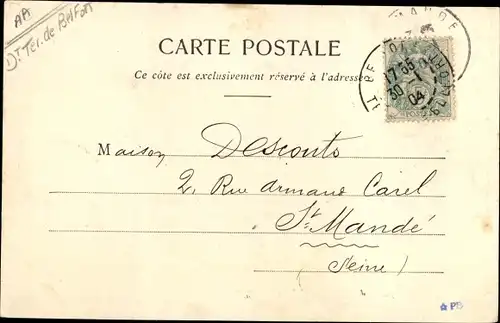 AA
Dt Ter. de Belfort
CARTE POSTALE
Ce côte est exclusivement réservé à l'adresse
MANDE
17 55
30
04
Maison Desconts
2, Rue Armand Carel
St Mandé
(Seine)
PB